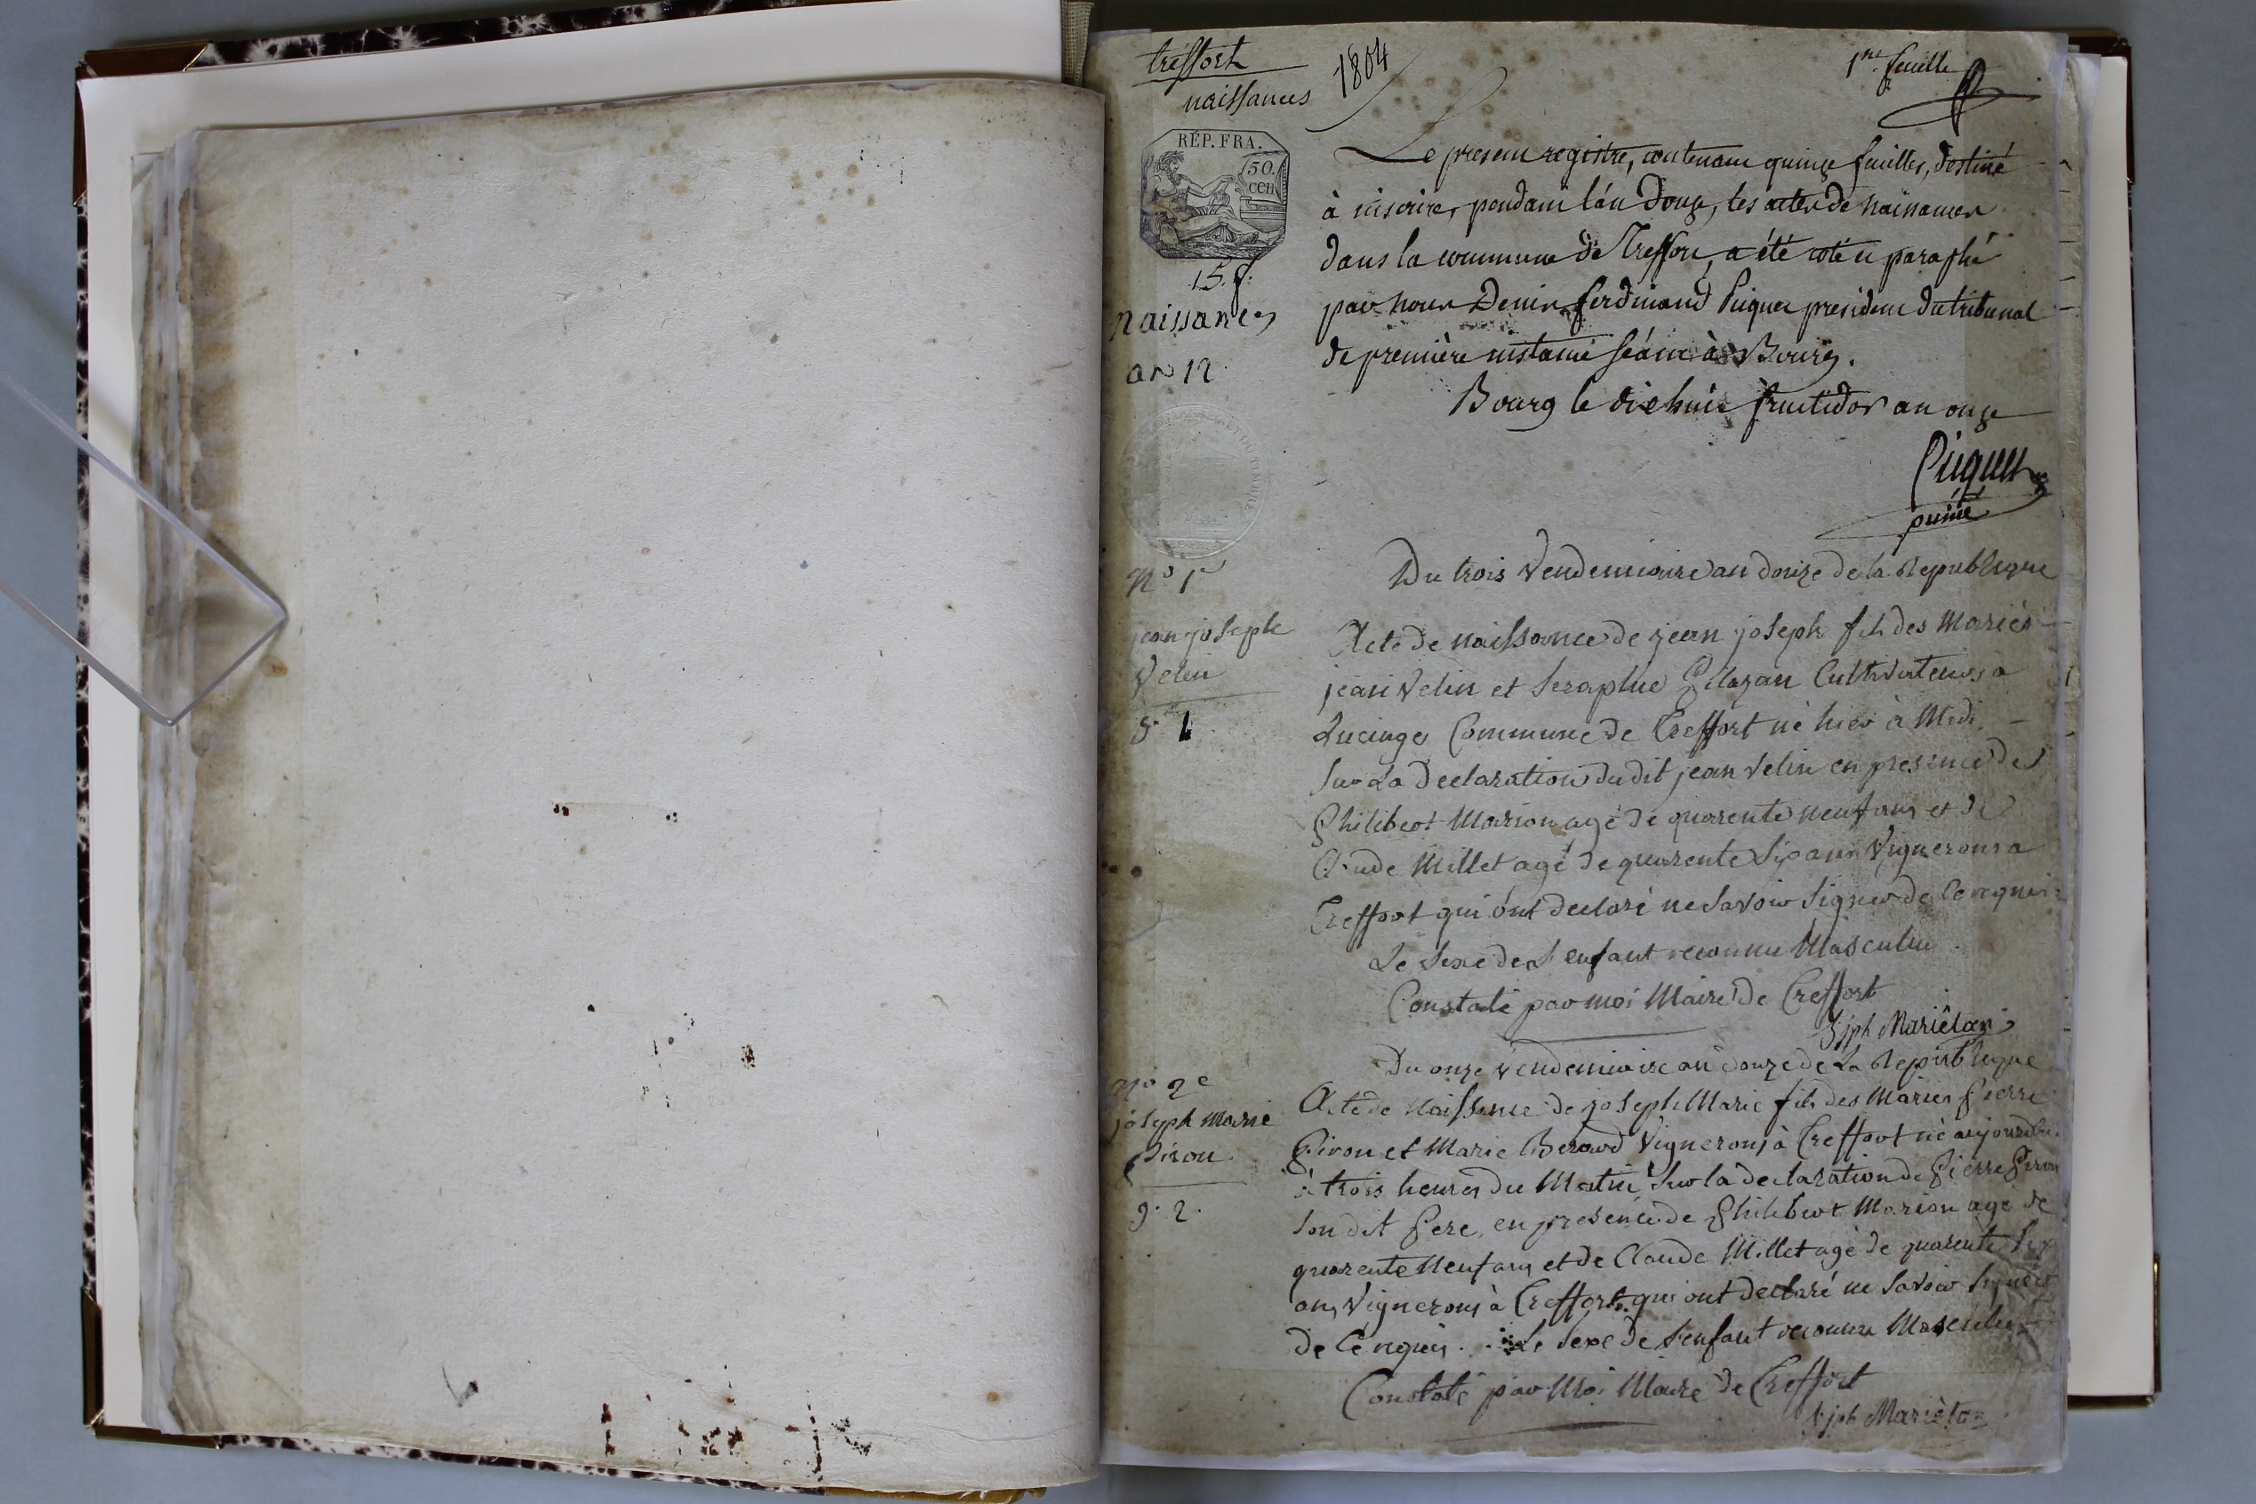 treffort
naissances
1804
1re feuille
RÉP. FRA.
50.
cen
15. f.
naissances
an 12
Le present registre, contenant quinze feuilles, destiné
à inscrire, pendant l'an douze, les actes de naissances
dans la commune de Treffort, a été coté et paraphé
par nous Denis Ferdinand Piquet president du tribunal
de première instance séant à Bourg.
Bourg le dix huit fructidor an onze
Piquet
No 1er
jean joseph
Velin
g. 1
Du trois Vendemiaire an douze de la Republique
Acte de naissance de jean joseph fils des mariés
jean Velin et Seraphie Cultivateurs a
Lucinge Commune de Treffort né hier à Midi
Sur La Declaration du dit jean Velin en presence de
Philibert Marion agé de quarente neuf ans et de
Claude Millet agé de quarente six ans Vignerons a
Treffort qui ont declaré ne Savoir Signer de Ce requis
Le Sexe de L'enfant reconnu Masculin.
Constaté par moi Maire de Treffort
Jph Mariélan
No 2e
joseph marie
Piron
g. 2.
Du onze Vendemiaire an douze de La Republique
Acte de Naissance de joseph Marie fils des Mariés Pierre
Piron et Marie Beroud Vignerons à Treffort né aujourdhui
à trois heures du Matin Sur la declaration de Pierre Piron
Son dit Pere, en presence de Philibert Marion agé de
quarente Neuf ans et de Claude Millet agé de quarente Six
ans, Vignerons à Treffort qui ont declaré ne Savoir Signer
de Ce requis. Le Sexe de L'enfant reconnu Masculin
Constaté par Moi Maire de Treffort
Jph Mariélan